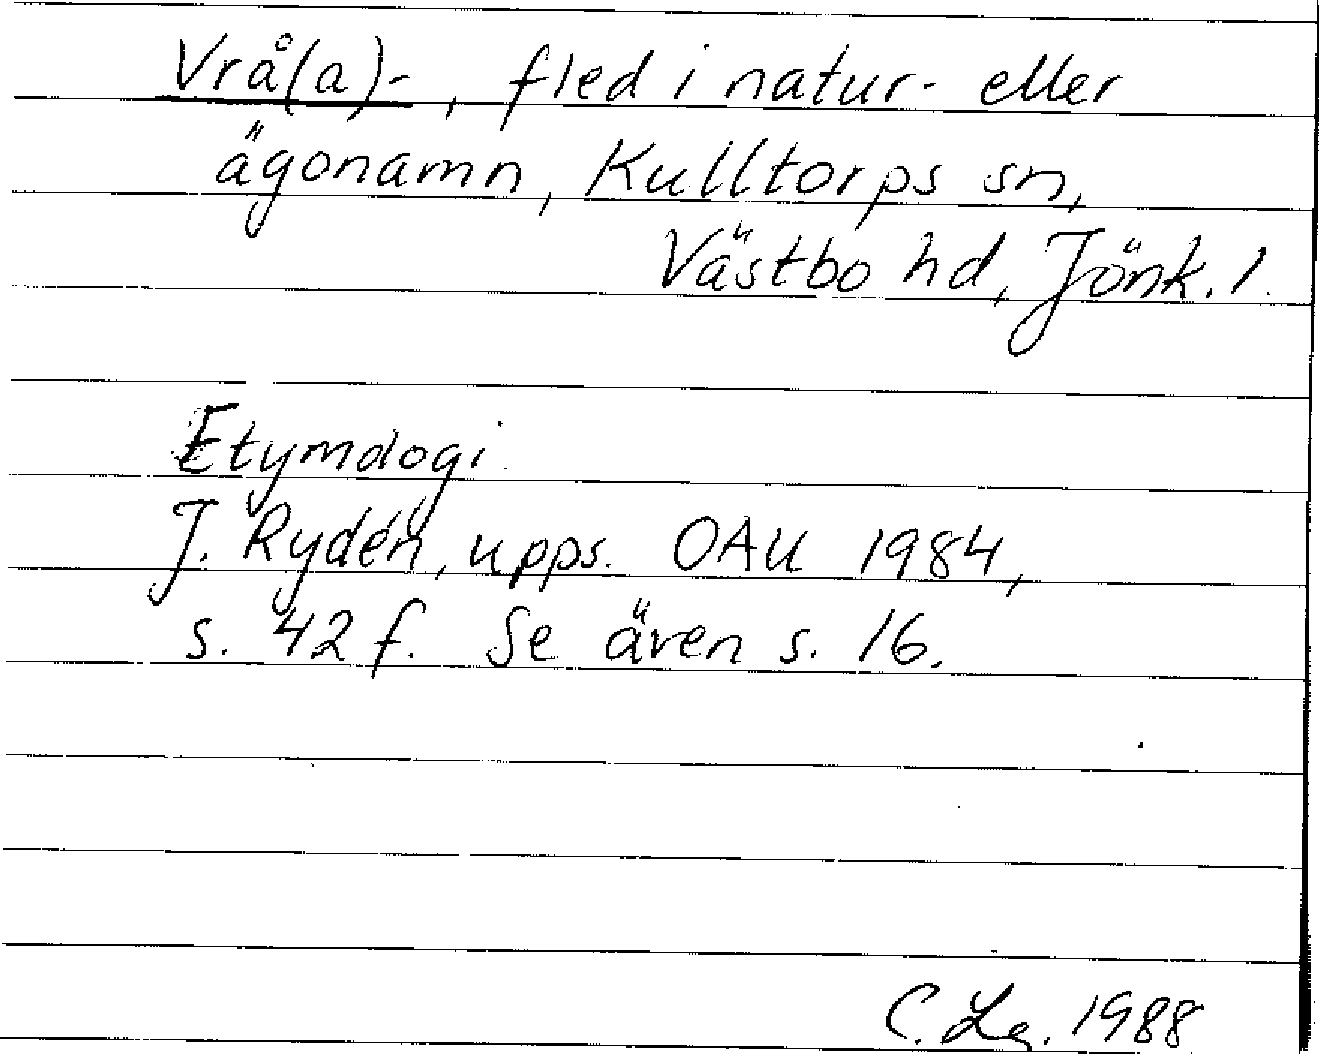 Vrå(a)-, fled i natur- eller
ägonamn, Kulltorps sn,
Västbo hd, Jönk. l.
Etymologi
J. Rydén, upps. OAU 1984,
s. 42 f. Se även s. 16.
C. Lg. 1988